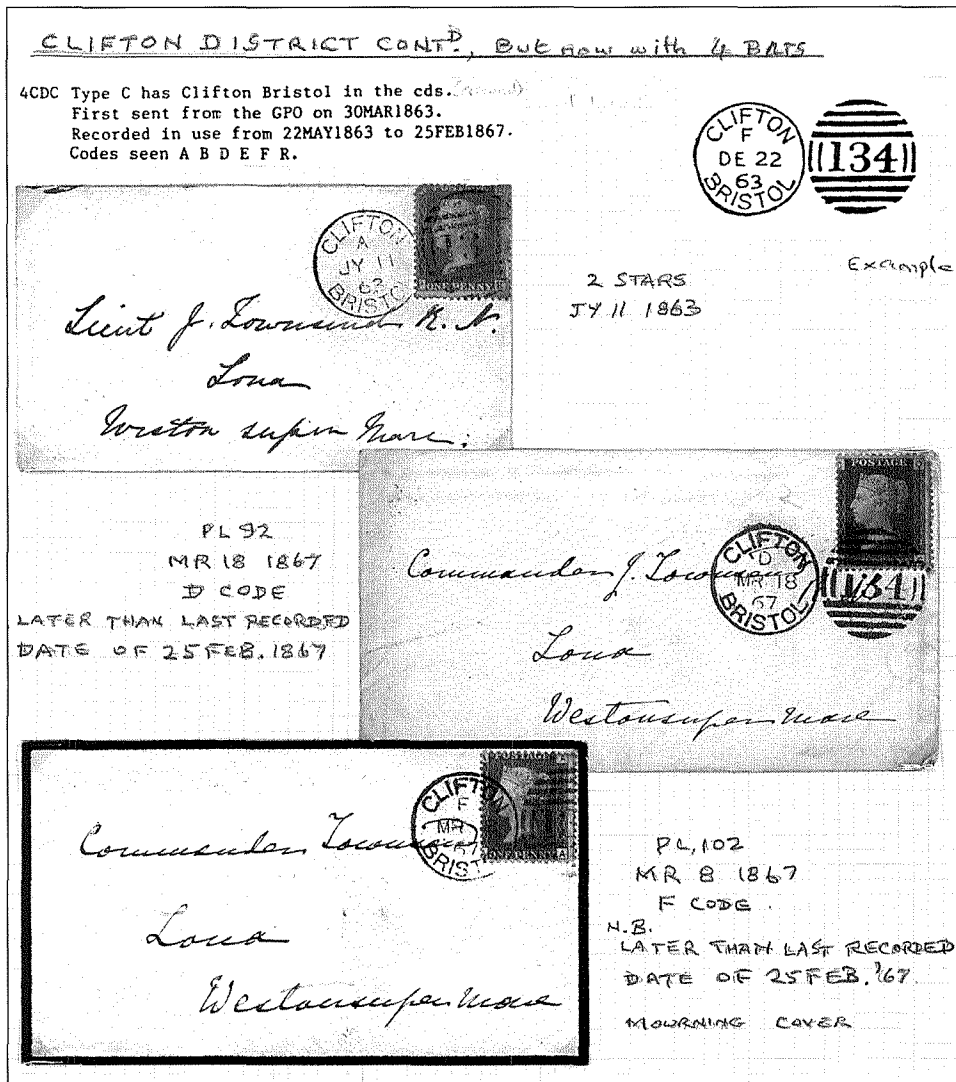 CLIFTON DISTRICT CONTD., But now with 4 BARS
4CDC Type C has Clifton Bristol in the cds.
First sent from the GPO on 30MAR1863.
Recorded in use from 22MAY1863 to 25FEB1867.
Codes seen A B D E F R.
CLIFTON
F
DE 22
63
BRISTOL
134
Example
CLIFTON
A
JY 11
63
BRISTO
ONE PENNY
Lieut J. Townsend R.N.
Lona
Weston super Mare.
2 STARS
JY 11 1863
PL 92
MR 18 1867
D CODE
LATER THAN LAST RECORDED
DATE OF 25 FEB. 1867
POSTAGE
CLIFTON
D
MR 18
67
BRISTOL
134
Commander J. Townsend
Lona
Westonsuper Mare
CLIFTON
F
MR
67
BRIST
ONE PENNY
Commander Townsend
Lona
Westonsuper Mare
PL, 102
MR 8 1867
F CODE
N.B.
LATER THAN LAST RECORDED
DATE OF 25 FEB. '67
MOURNING COVER